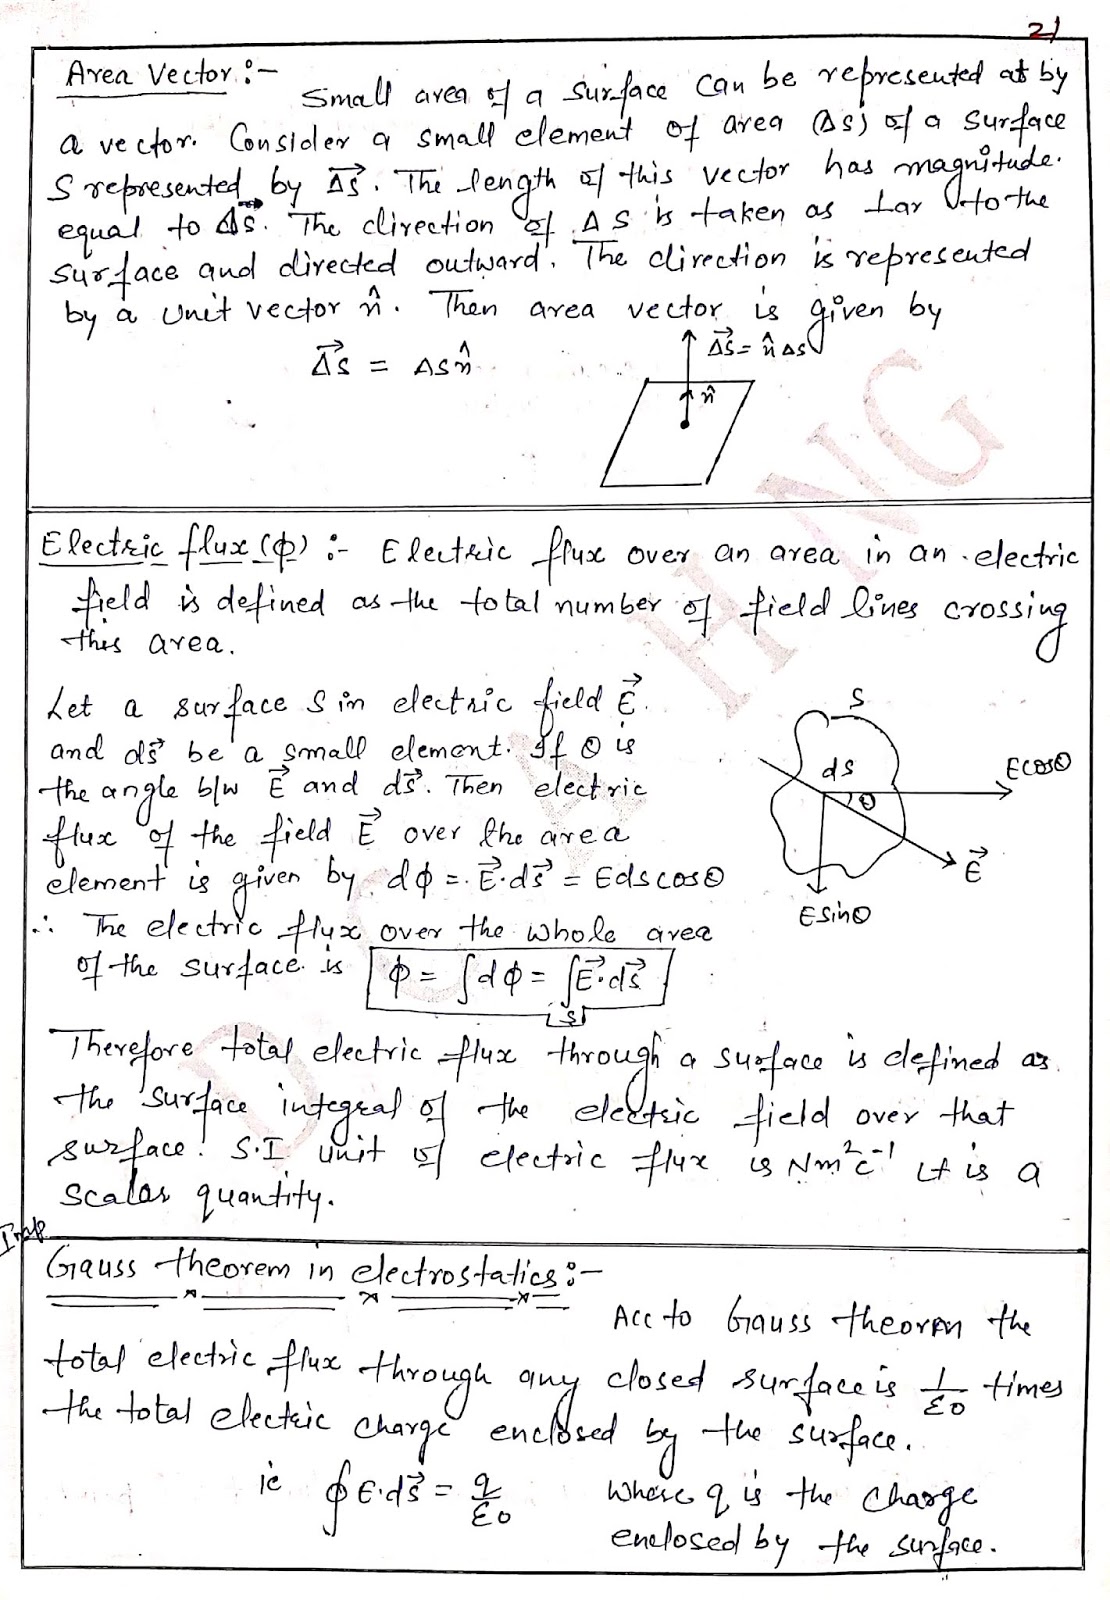 21
Area Vector :-
Small area of a surface can be represented at by
a vector. Consider a small element of area (ΔS) of a surface
S represented by ΔS⃗. The length of this vector has magnitude.
equal to ΔS⃗. The direction of ΔS is taken as ⊥ar to the
surface and directed outward. The direction is represented
by a unit vector n̂. Then area vector is given by
ΔS⃗ = ΔS n̂
ΔS⃗ = n̂ ΔS
n̂
Electric flux (ϕ) :- Electric flux over an area in an electric
field is defined as the total number of field lines crossing
this area.
Let a surface S in electric field E⃗.
and ds⃗ be a small element. If θ is
the angle b/w E⃗ and ds⃗. Then electric
flux of the field E⃗ over the area
element is given by dϕ = E⃗·ds⃗ = Edscosθ
∴ The electric flux over the whole area
of the surface is ϕ = ∫dϕ = ∫E⃗·ds⃗
S
S
ds
Ecosθ
θ
E⃗
Esinθ
Therefore total electric flux through a surface is defined as
the surface integral of the electric field over that
surface. S.I unit of electric flux is Nm²c⁻¹ It is a
scalar quantity.
Imp
Gauss theorem in electrostatics :-
Acc to Gauss theorem the
total electric flux through any closed surface is 1/ε0 times
the total electric charge enclosed by the surface.
ie ∮E·ds⃗ = q/ε0 where q is the charge
enclosed by the surface.